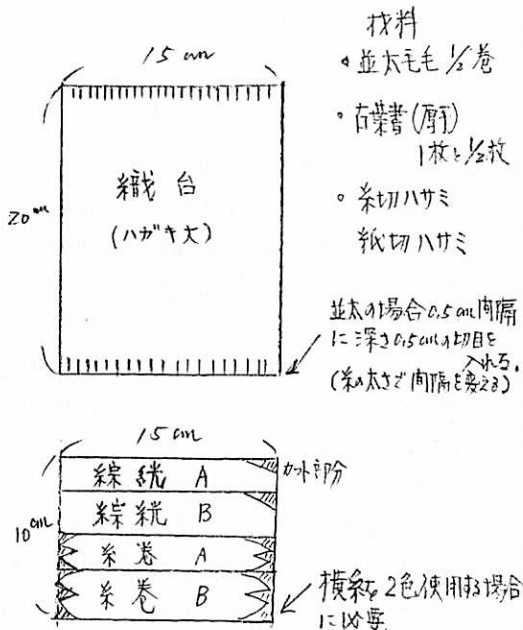 15cm
20cm
織台
(ハガキ大)
材料
・並太毛毛 1/2巻
・古葉書(厚手)
1枚と1/2枚
・糸切ハサミ
紙切ハサミ
並太の場合0.5cm間隔
に深さ0.5cmの切目を
入れる。
(糸の太さで間隔を変える)
15cm
10cm
綜絖 A
カット部分
綜絖 B
糸巻 A
糸巻 B
横糸を2色使用する場合
に必要